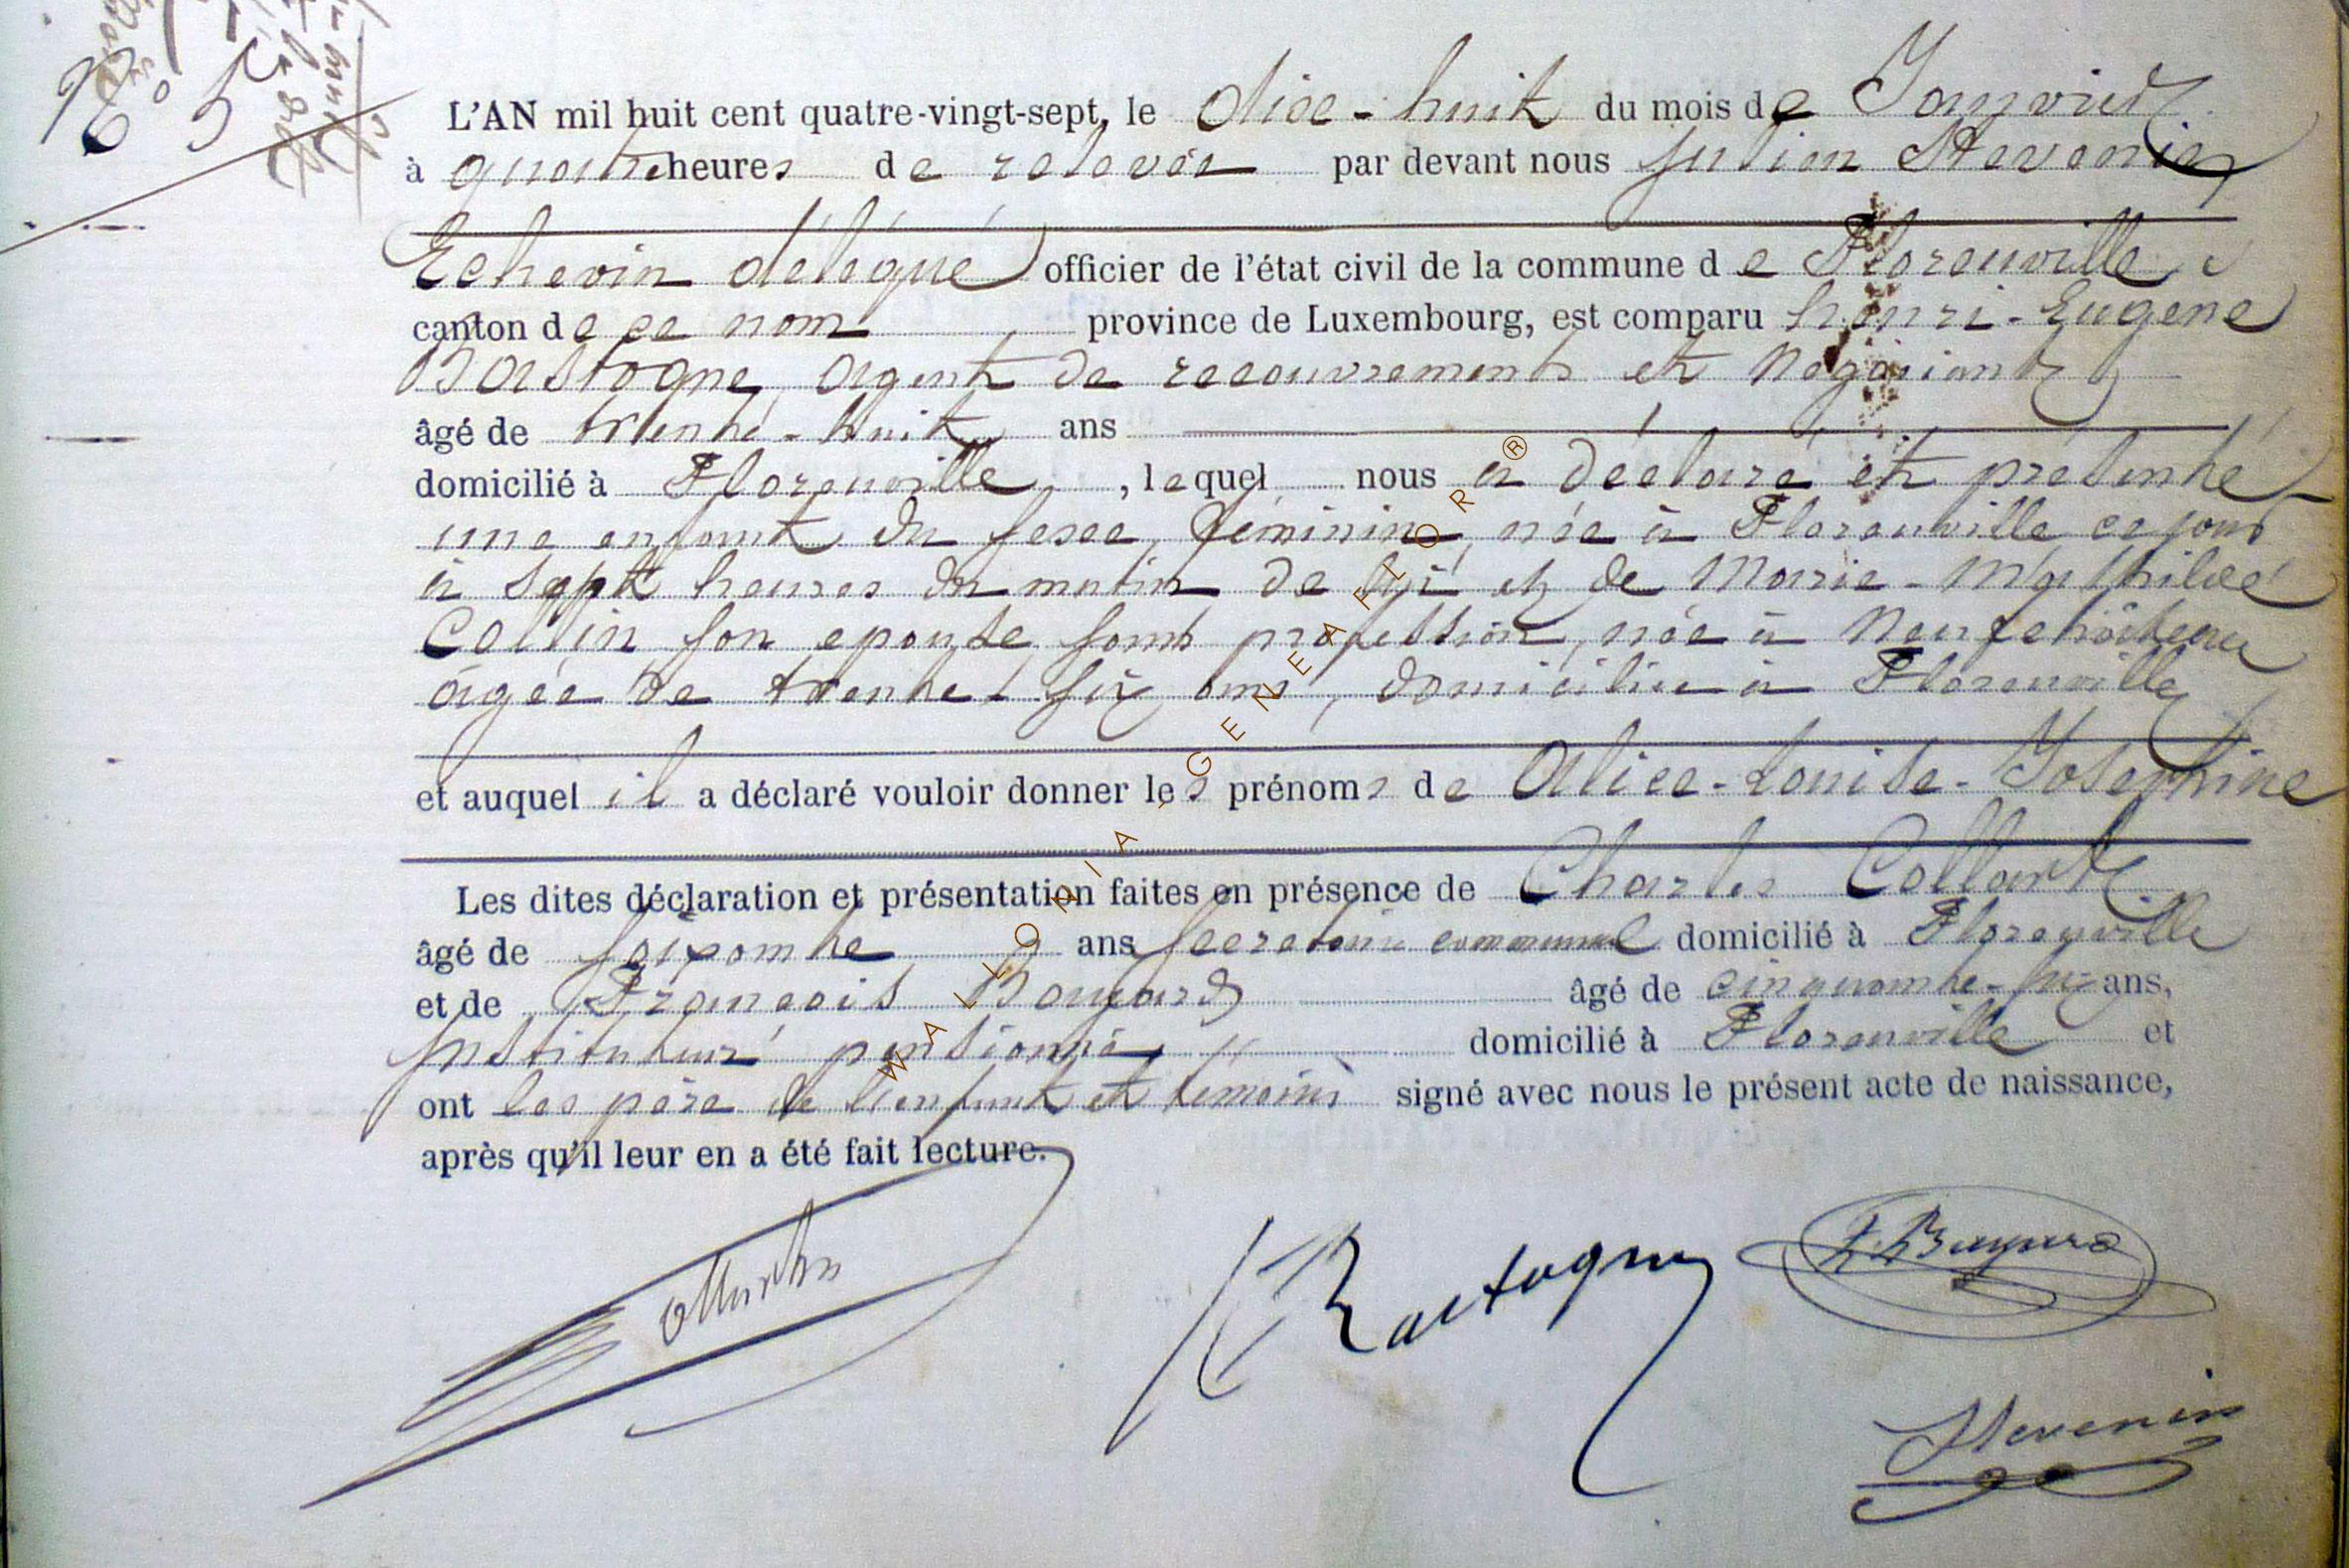 N° 5
L'AN mil huit cent quatre-vingt-sept, le dixe-huit du mois de Janvier
à quatre heures de relevée par devant nous Julien Stevenin
Echevin délégué officier de l'état civil de la commune de Florenville,
canton de ce nom province de Luxembourg, est comparu henri-Eugène
Bastogne, agent de recouvrements et Négociant
âgé de trente-huit ans
domicilié à Florenville, lequel nous a déclaré et présenté
une enfant du sexe féminin, née à Florenville ce jour
à sept heures du matin de lui et de Marie-
Collin son épouse sans profession, née à Neufchâteau
âgée de trente-six ans, domiciliée à Florenville
et auquel il a déclaré vouloir donner les prénoms de Alice-Louise-Joséphine
Les dites déclaration et présentation faites en présence de Charles Collard
âgé de soixante ans secrétaire communal domicilié à Florenville
et de François âgé de cinquante-six ans,
Instituteur pensionné domicilié à Florenville et
ont les père de l'enfant et témoins signé avec nous le présent acte de naissance,
après qu'il leur en a été fait lecture.
Bastogne
Stevenin
WALLONIA - GENEAFTOR®